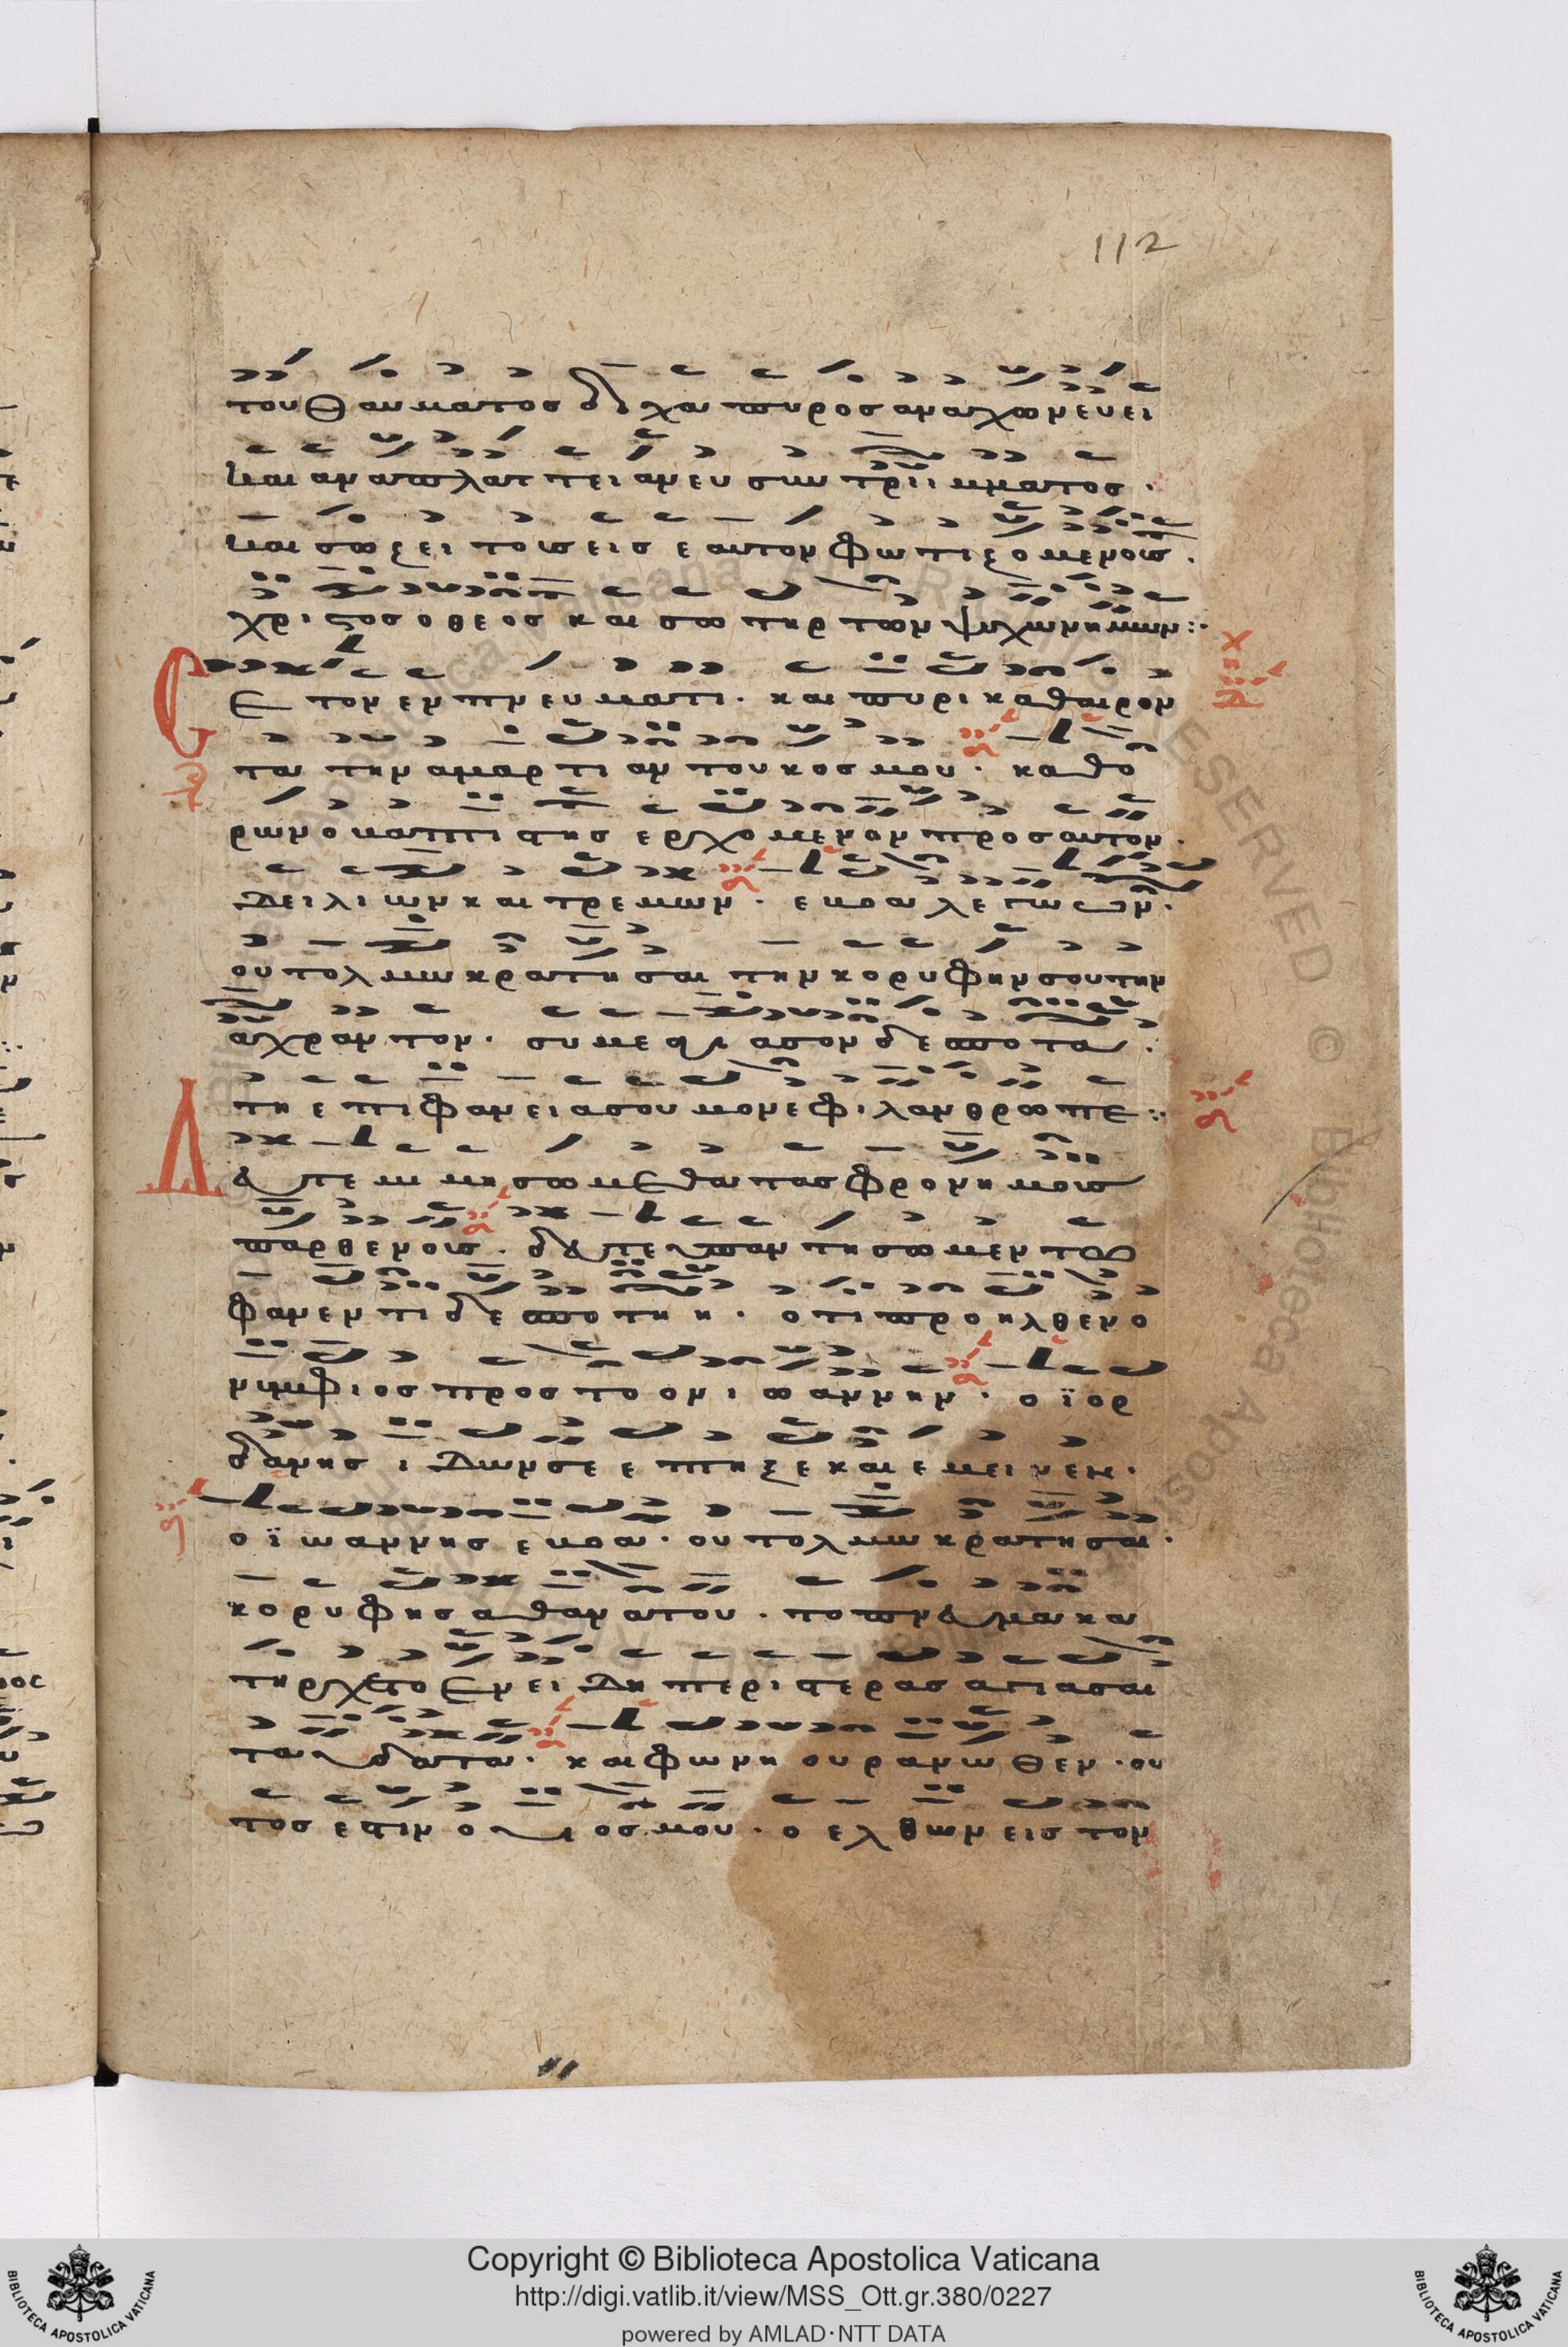 112
του θαυματος διχα πυρος αναχωνευει
και αναπλαττει ανευ συντριμματος ·
και σωζει τους εις εαυτον φωτιζομενους ·
χριστος ο θεος και σωτηρ των ψυχων ημων :·
Σε τον εν πνευματι · και πυρι καθαιρον
τα την αμαρτιαν του κοσμου · καθο
ρων ο βαπτιστης ερχομενον προς αυτον ·
Δειλιων και τρεμων · εβοα λεγων ·
ου τολμω κρατησαι την κορυφην σου την
αχραντον · συ με αγιασον δεσποτα ·
τη επιφανεια σου μονε φιλανθρωπε :·
Δευτε μιμησωμεθα τας φρονημους
παρθενους · δευτε υπαντησωμεν τω
φανεντι δεσποτη · οτι προηλθεν ο
νυμφιος προς τον ιωαννην · ο ϊορ
δανης ιδων σε επτηξε και εμεινεν ·
ο ϊωαννης εβοα · ου τολμω κρατησαι ·
κορυφης αθανατου · το πνευμα κα
τηρχετο εν ειδη περιστερας αγιασαι
τα υδατα · και φωνη ουρανωθεν · ου
τος εστιν ο υιος μου · ο ελθων εις τον
Copyright © Biblioteca Apostolica Vaticana
http://digi.vatlib.it/view/MSS_Ott.gr.380/0227
powered by AMLAD·NTT DATA
BIBLIOTECA APOSTOLICA VATICANA
BIBLIOTECA APOSTOLICA VATICANA